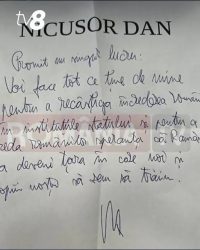 tv8
NICUSOR DAN
Promit un singur lucru:
Voi face tot ce ține de mine
pentru a recâștiga încrederea români
în instituțiile statului și pentru a
reda românilor speranța că
a deveni țara în care noi și
copiii noștri să vrem să trăim.